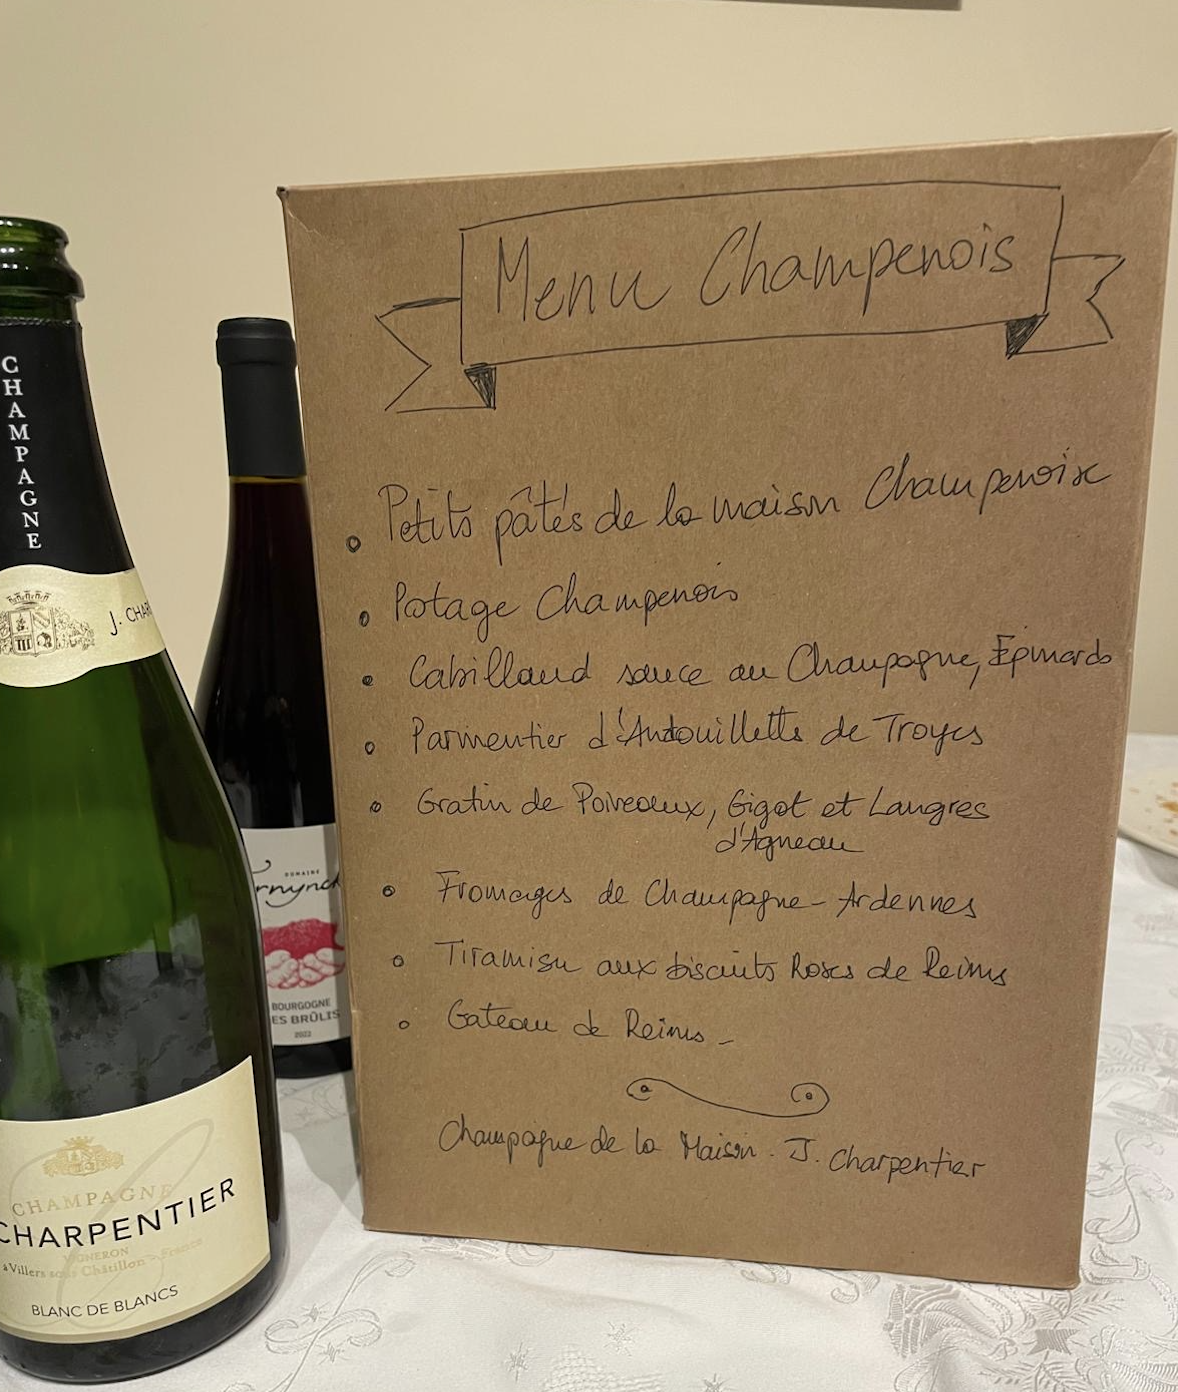 Menu Champenois
Petits pâtés de la maison Champenoise
Potage Champenois
Cabillaud sauce au Champagne, Epinards
Parmentier d'Andouillette de Troyes
Gratin de Poireaux, Gigot et Langres
d'Agneau
Fromages de Champagne-Ardennes
Tiramisu aux biscuits Roses de Reims
Gateau de Reims -
Champagne de la Maison. J. Charpentier
CHAMPAGNE
J. CHAR
CHAMPAGNE
CHARPENTIER
VIGNERON
à Villers sous Châtillon - France
BLANC DE BLANCS
DOMAINE
rnynck
BOURGOGNE
ES BRÛLIS
2022